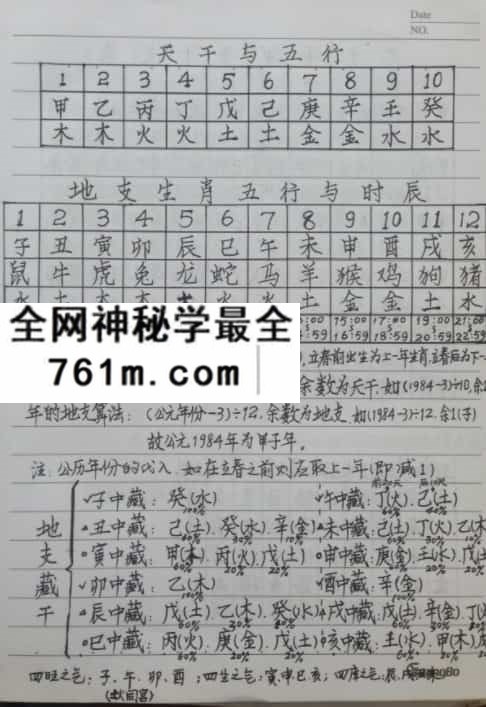 Date
NO.
天干与五行
1 2 3 4 5 6 7 8 9 10
甲 乙 丙 丁 戊 己 庚 辛 壬 癸
木 木 火 火 土 土 金 金 水 水
地支生肖五行与时辰
1 2 3 4 5 6 7 8 9 10 11 12
子 丑 寅 卯 辰 巳 午 未 申 酉 戌 亥
鼠 牛 虎 兔 龙 蛇 马 羊 猴 鸡 狗 猪
土 金 金 土 水
15:00 17:00 19:00 21:00
16:59 18:59
全网神秘学最全
761m.com
立春前出生为上一年生肖,立春后为下一
余数为天干,如(1984-3)÷10,余1
年的地支算法:(公元年份-3)÷12,余数为地支,如(1984-3)÷12,余1(子)
故公元1984年为甲子年。
注:公历年份的代入,如在立春之前则应取上一年(即减1)
地支藏干
子中藏:癸(水) 100% 午中藏:丁(火)、己(土)
丑中藏:己(土)、癸(水)、辛(金) 未中藏:己(土)、丁(火)、乙(木
寅中藏:甲(木)、丙(火)、戊(土) 申中藏:庚(金)、壬(水)、戊(土
卯中藏:乙(木) 100% 酉中藏:辛(金) 100%
辰中藏:戊(土)、乙(木)、癸(水) 戌中藏:戊(土)、辛(金)、丁(
巳中藏:丙(火)、庚(金)、戊(土) 亥中藏:壬(水)、甲(木)
四旺之气:子、午、卯、酉;四生之气:寅申巳亥;四库之气:辰